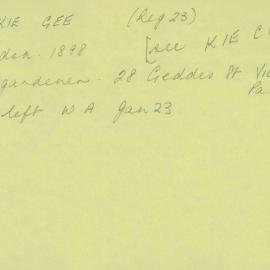 KIE GEE (Reg 23)
don. 1898 [see KIE C
gardener. 28 Geddes St. Vic
Pa
left W.A. Jan 23.